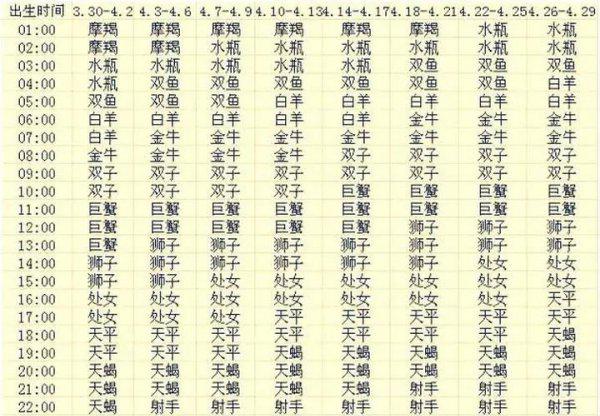 出生时间 3.30-4.2 4.3-4.6 4.7-4.9 4.10-4.13 4.14-4.17 4.18-4.21 4.22-4.25 4.26-4.29
01:00 摩羯 摩羯 摩羯 摩羯 摩羯 摩羯 水瓶 水瓶
02:00 摩羯 摩羯 水瓶 水瓶 水瓶 水瓶 水瓶 水瓶
03:00 水瓶 水瓶 水瓶 水瓶 水瓶 双鱼 双鱼 双鱼
04:00 水瓶 双鱼 双鱼 双鱼 双鱼 双鱼 双鱼 白羊
05:00 双鱼 双鱼 双鱼 白羊 白羊 白羊 白羊 白羊
06:00 白羊 白羊 白羊 白羊 白羊 金牛 金牛 金牛
07:00 白羊 金牛 金牛 金牛 金牛 金牛 金牛 金牛
08:00 金牛 金牛 金牛 双子 双子 双子 双子 双子
09:00 双子 双子 双子 双子 双子 双子 双子 双子
10:00 双子 双子 双子 双子 巨蟹 巨蟹 巨蟹 巨蟹
11:00 巨蟹 巨蟹 巨蟹 巨蟹 巨蟹 巨蟹 巨蟹 巨蟹
12:00 巨蟹 巨蟹 巨蟹 巨蟹 巨蟹 狮子 狮子 狮子
13:00 巨蟹 狮子 狮子 狮子 狮子 狮子 狮子 狮子
14:00 狮子 狮子 狮子 狮子 狮子 狮子 处女 处女
15:00 狮子 狮子 处女 处女 处女 处女 处女 处女
16:00 处女 处女 处女 处女 处女 处女 处女 天平
17:00 处女 处女 处女 天平 天平 天平 天平 天平
18:00 天平 天平 天平 天平 天平 天平 天平 天蝎
19:00 天平 天平 天平 天蝎 天蝎 天蝎 天蝎 天蝎
20:00 天蝎 天蝎 天蝎 天蝎 天蝎 天蝎 天蝎 天蝎
21:00 天蝎 天蝎 天蝎 天蝎 天蝎 射手 射手 射手
22:00 天蝎 射手 射手 射手 射手 射手 射手 射手